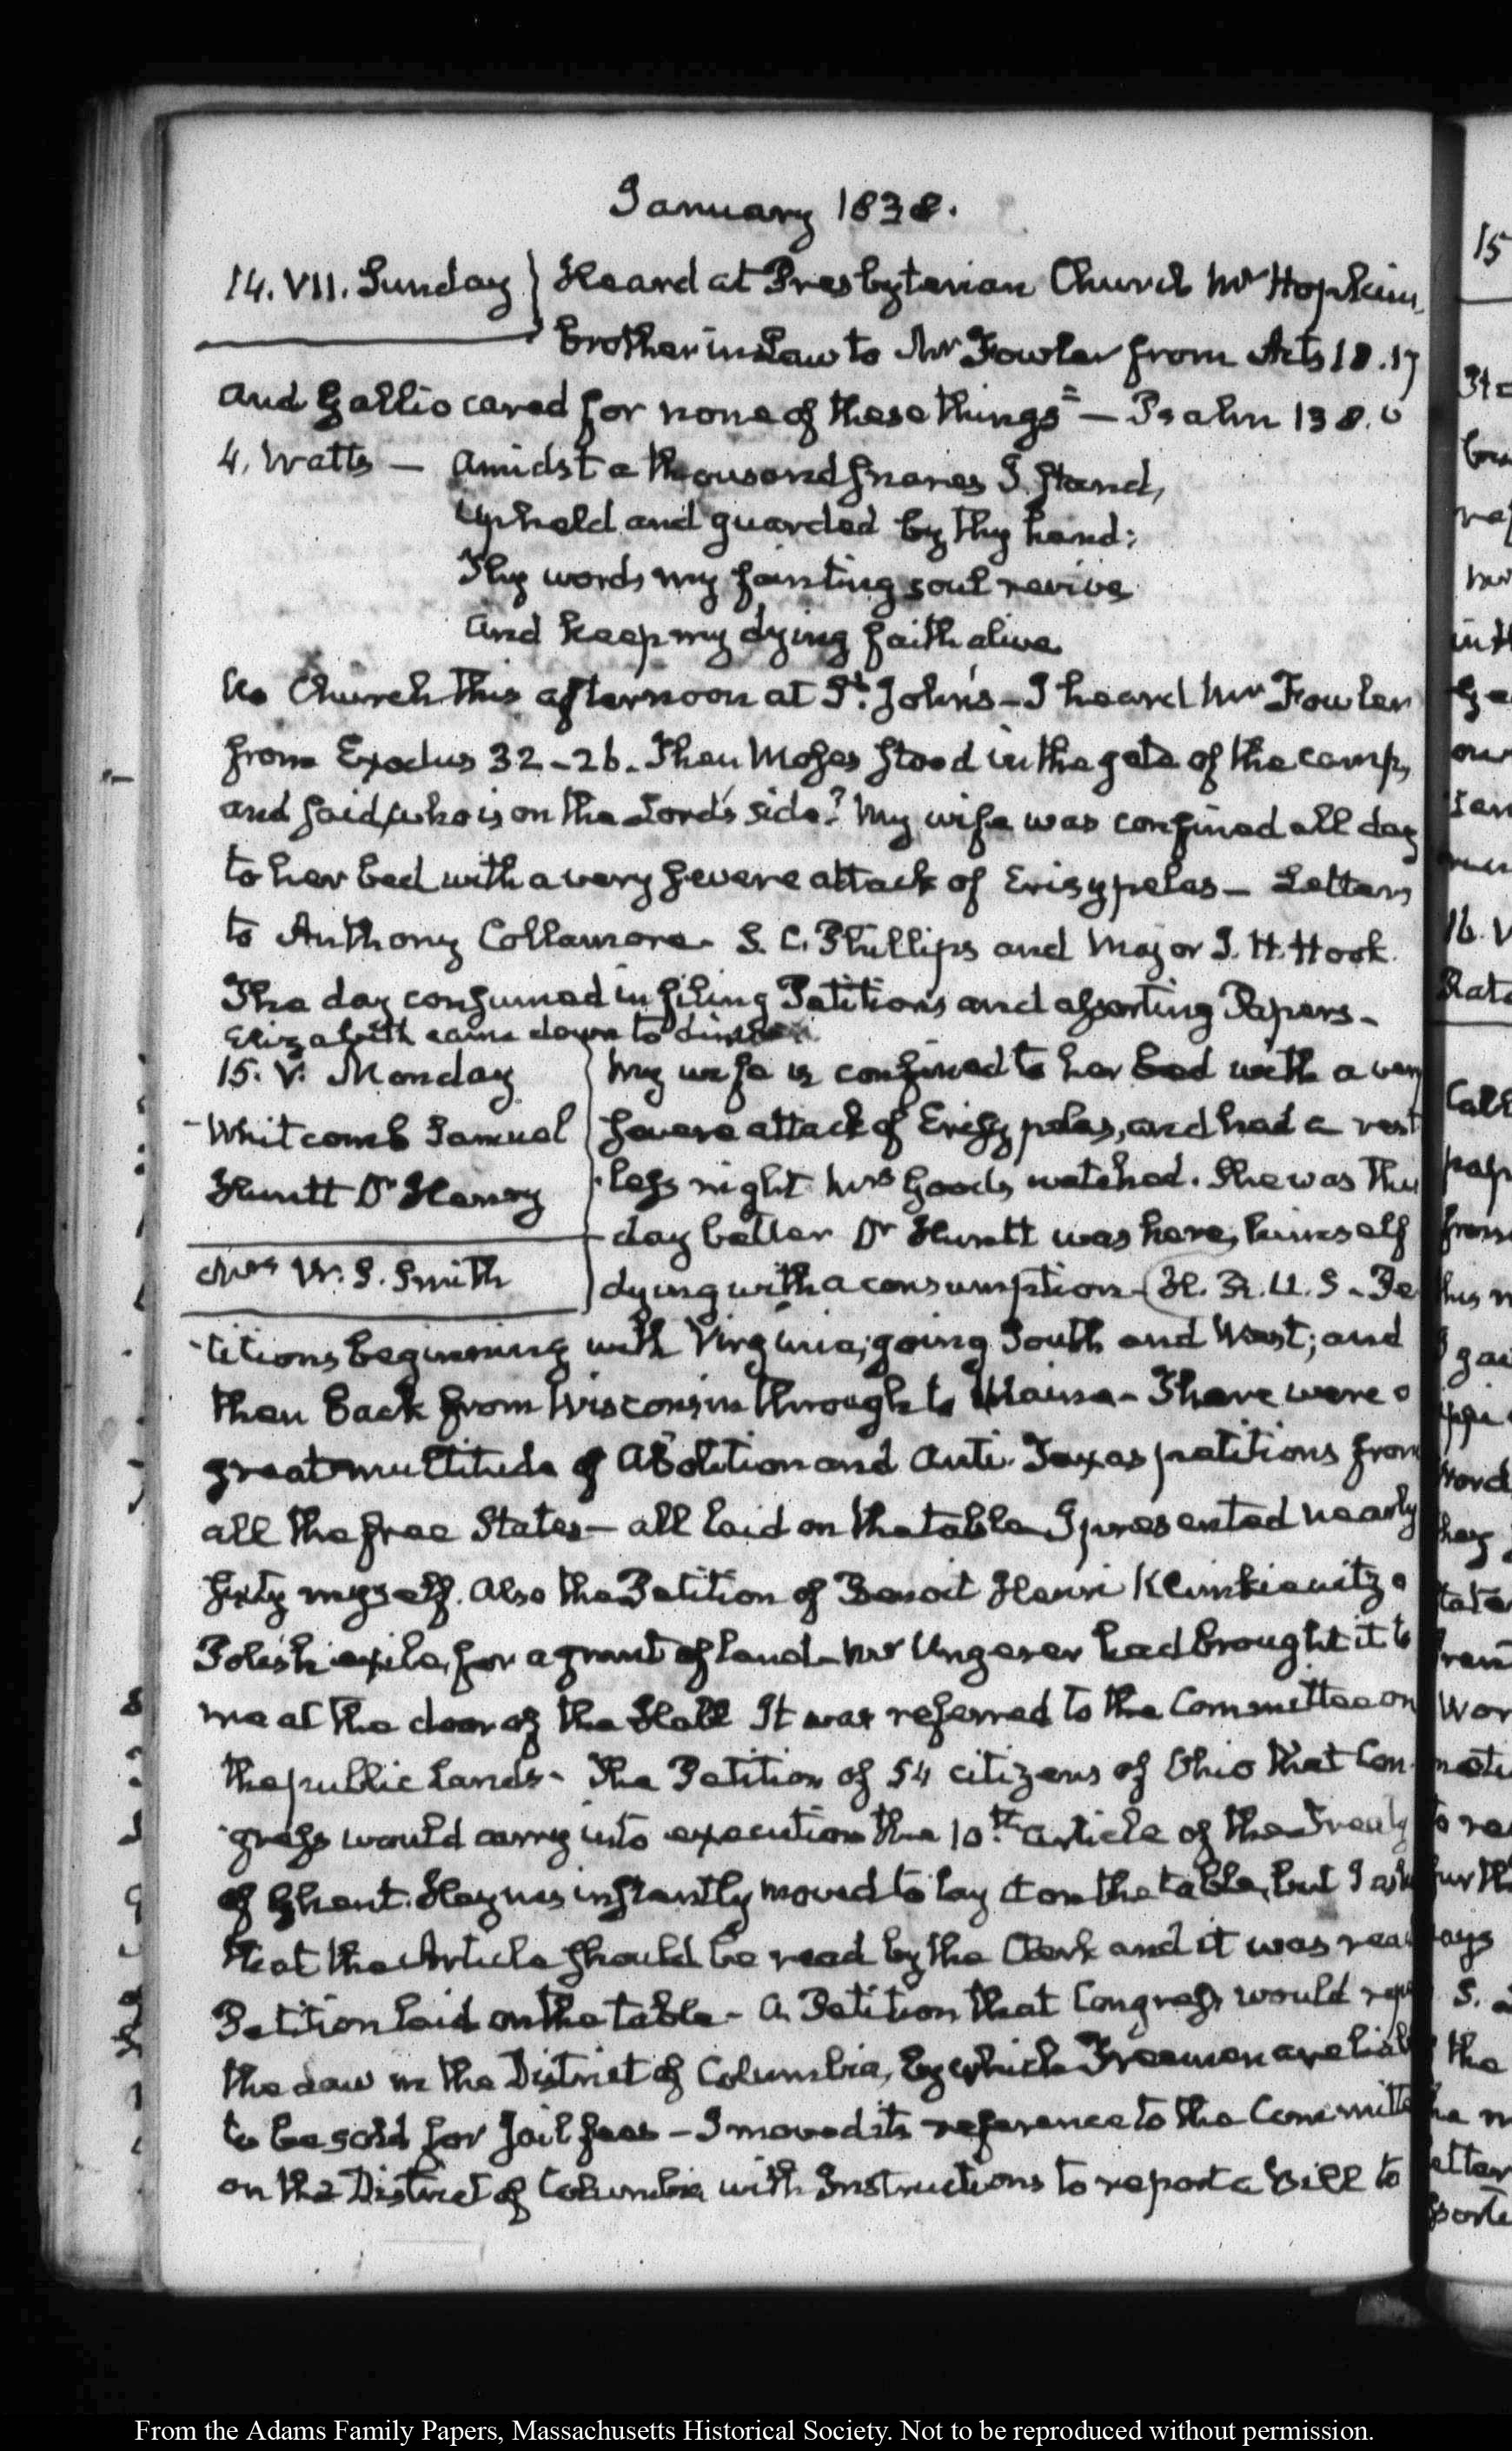 January 1838.
14. VII. Sunday } Heard at Presbyterian Church Mr Hopkins,
brother in Law to Mr Fowler from Acts 18.17
and Gallio cared for none of these things" — Psalm 138. v
4. Watts — Amidst a thousand snares I stand,
Upheld and guarded by thy hand;
Thy words my fainting soul revive
And keep my dying faith alive
No Church this afternoon at St. John's — I heard Mr Fowler
from Exodus 32-26. Then Moses stood in the gate of the camp,
and said, who is on the Lord's side? My wife was confined all day
to her bed with a very severe attack of Erisypelas — Letters
to Anthony Collamore. S. C. Phillips and Major J. H. Hook.
The day consumed in filing Petitions and assorting Papers —
Elizabeth came down to dinner
15. V. Monday } My wife is confined to her bed with a very
Whitcomb Samuel } severe attack of Erisypelas, and had a rest
Huntt Dr Henry } less night Mrs Goods watched. She was this
day better Dr Huntt was here, himself
Mrs W. S. Smith } dying with a consumption — H. R. U. S — Pe
titions beginning with Virginia; going South and West; and
then back from Wisconsin through to Maine — There were a
great multitude of Abolition and Anti-Texas petitions from
all the free States — all laid on the table I presented nearly
fifty myself. Also the Petition of Benoit Henri Klimkiewitz a
Polish exile, for a grant of land — Mr Ungerer had brought it to
me at the door of the Hall It was referred to the Committee on
the public Lands — The Petition of 54 citizens of Ohio that Con-
gress would carry into execution the 10th. article of the Treaty
of Ghent. Haynes instantly moved to lay it on the table, but I ask
that the Article should be read by the Clerk and it was read
Petition laid on the table — A Petition that Congress would rep
the Law in the District of Columbia, by which Freemen are liab
to be sold for jail fees — I moved its reference to the Committe
on the District of Columbia with Instructions to report a Bill to
From the Adams Family Papers, Massachusetts Historical Society. Not to be reproduced without permission.